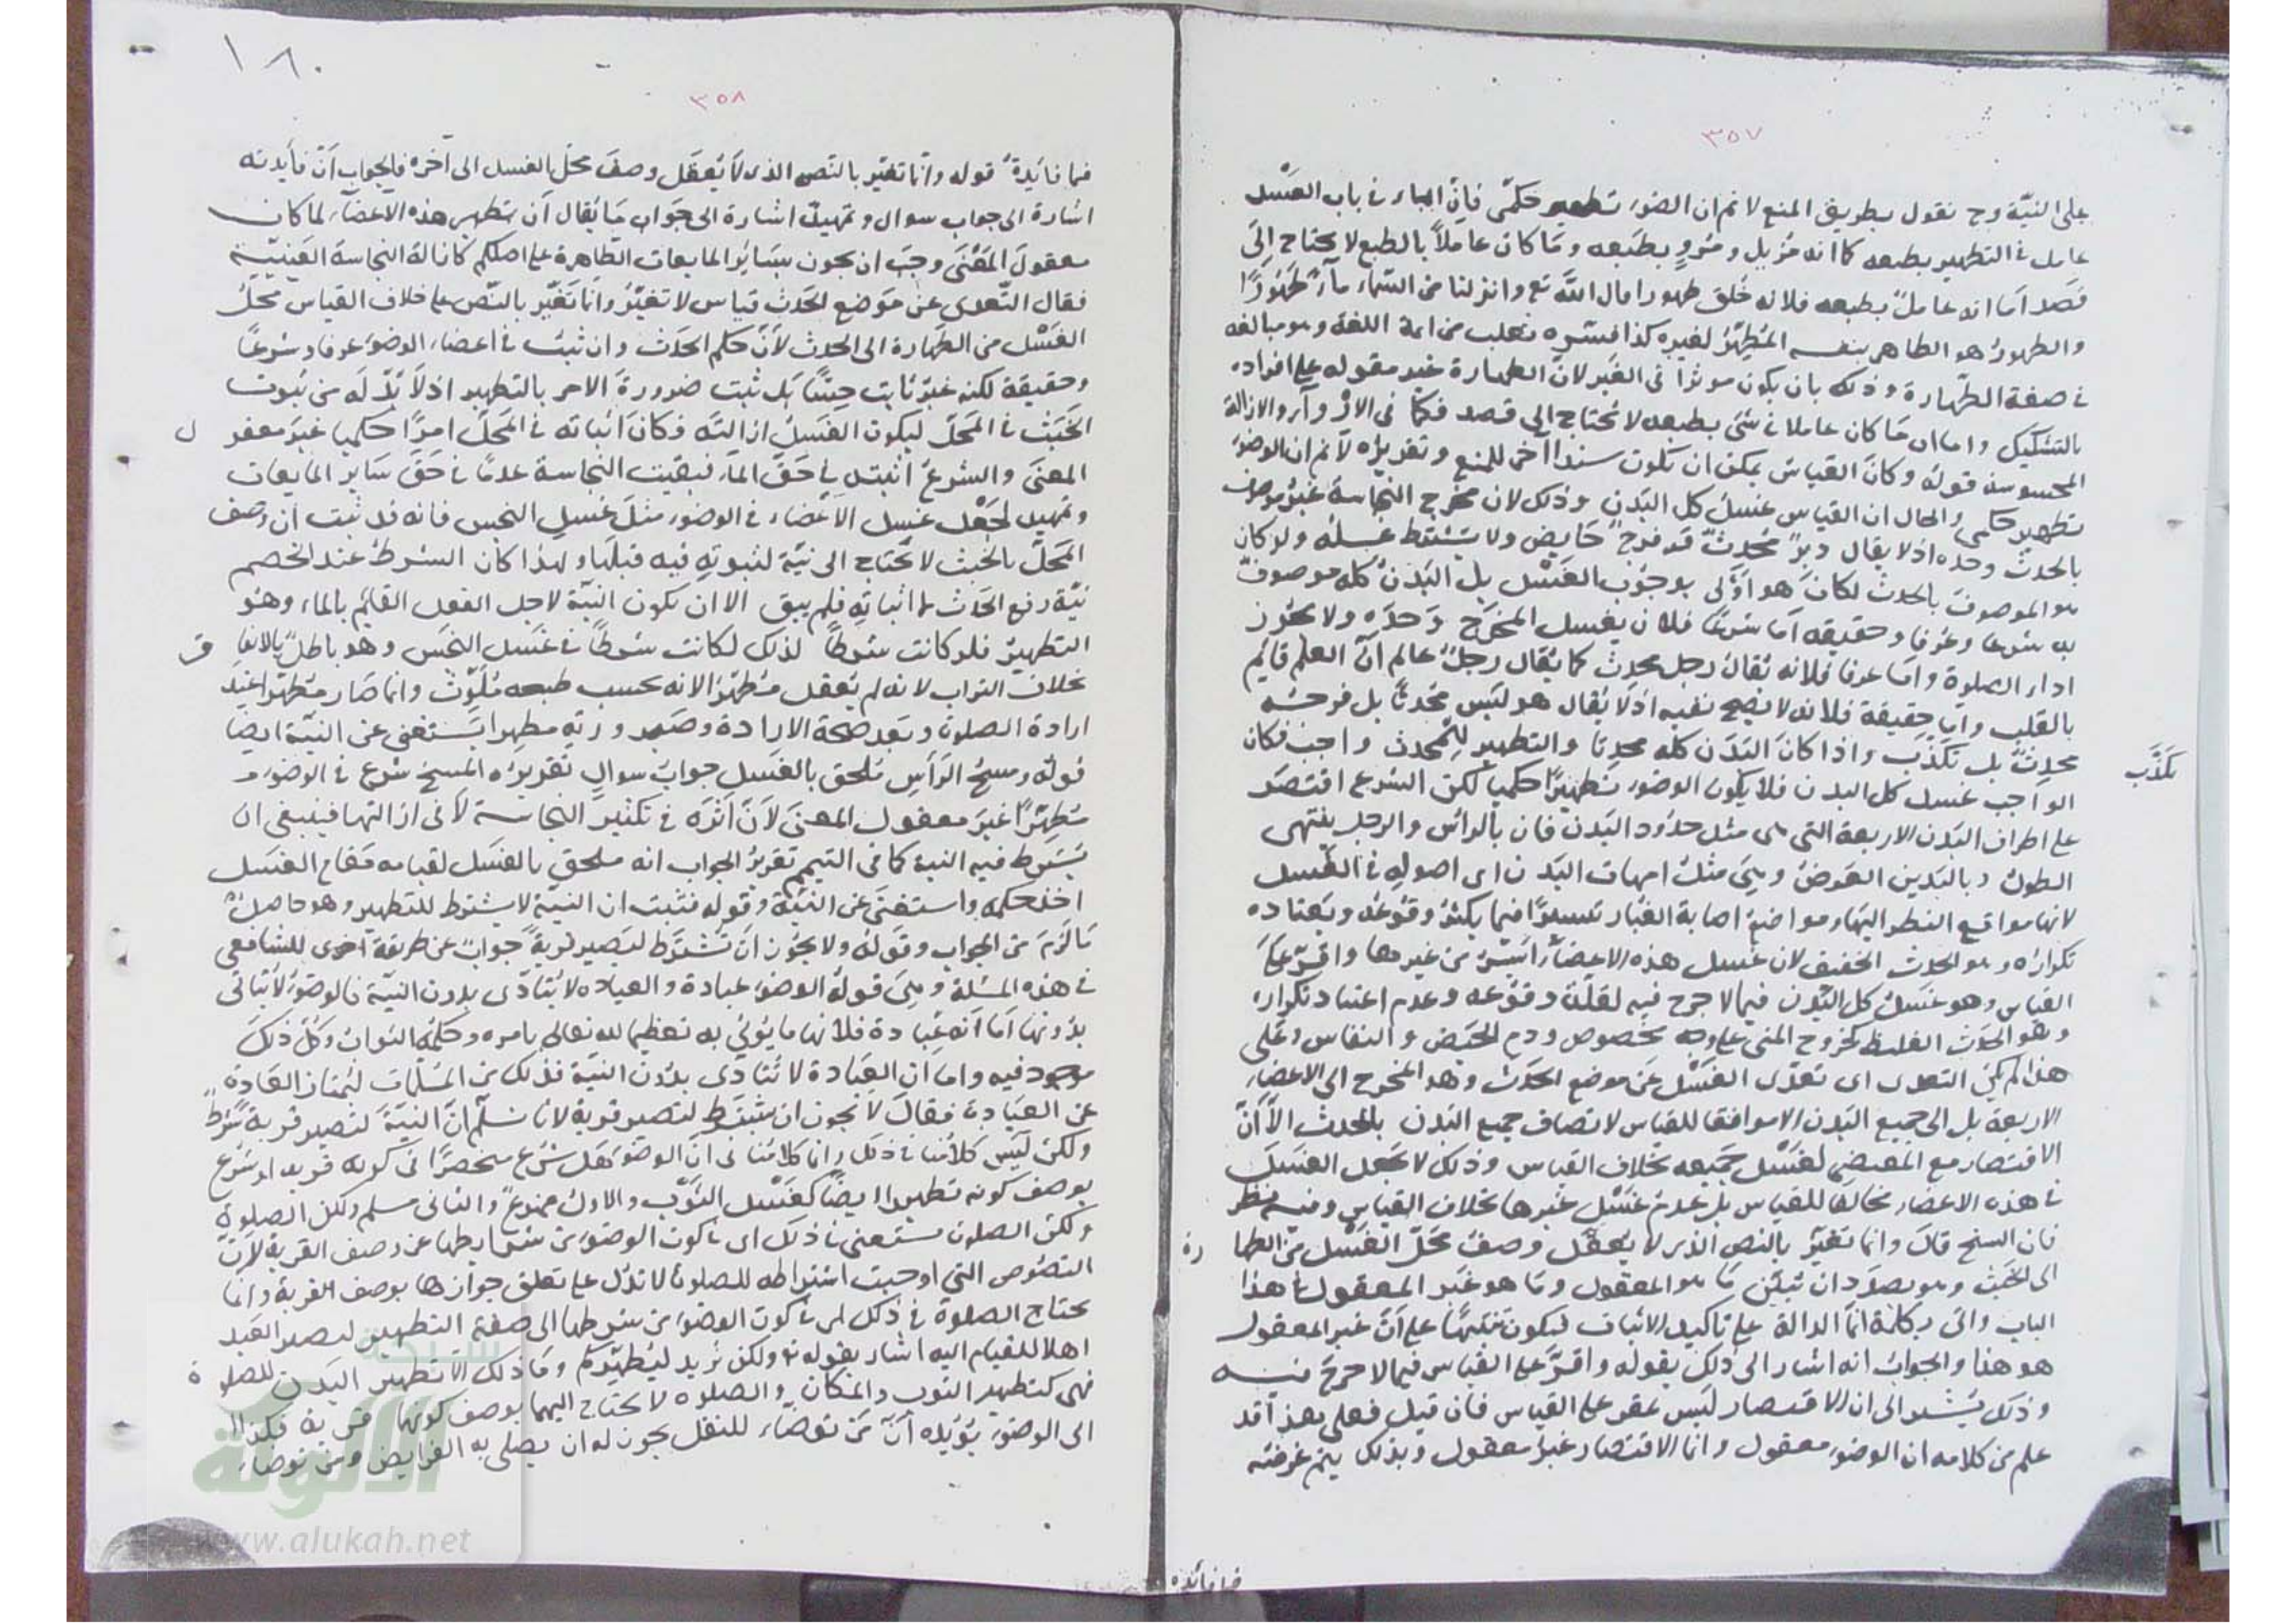 ٣٥٧
على النيّة وح نقول بطريق المنع لا نم ان الضوء تطهير حكمّى فانّ الماء فى باب الغَسْل
عامل فى التطهير بطبعه كما انه مُزيل ومُروٍ بطبَعه ومَا كان عاملاً بالطبع لا يحتاج الى
قصَد امَا انه عاملً بطبعه فلانه خُلق طهورا قال اللّه تع وانزلنا من السّماء ماءً طهُورًا
والطهورُ هو الطاهر بنفسه المُطهّرُ لغيره كذا فسّره ثعلب من ائمة اللغة وهو مبالغة
فى صفة الطّهارة وذلك بان يكون موثرا فى الغَير لانّ الطهارة غير مقوله على افراده
بالتشكيك واما ان مَا كان عاملا فى شئ بطبعه لا يحتاج الى قصد فكمَا فى الارْوآ والازالة
المحسوسة قولهُ وكانَ القياسُ يمكن ان يكون سندا آخر للمنع وتقريرُه لا نم ان الوضوَء
تطهير حكمى والحال ان القياس غسلُ كل البَدن وذلك لان مخْرج النجاسة غيرُ موصوف
بالحدث وحده اذ لا يقال دبرً مُحدِثٌ قد فرجً حَايض ولا يشترط غسله ولو كان
هو الموصوفَ بالحدث لكانَ هو اَوْلى بوجُوب الغَسْل بل البَدنُ كله موصوف
به شرعا وعُرفا وحقيقه اَما شرعًا فلا ن بغسل المخرَج وَحدَه ولا يجُوز
اداء الصلوة وامَا عرفا فلانه يُقالُ رجل محدث كما يُقال رجلً عالم انّ العلم قايُم
بالقلب وامّا حقيقة فلانه لا يصح نفيه اذ لا يُقال هو ليَس مُحدثاً بل فرجه
محدِثٌ بل يكذّب واذا كانَ البَدَن كله محدثا والتطهيُر للمُحدث واجب فكان
يكذَّب
الواَجب غسل كل البدن فلا يكون الوضوُء تطهيرًا حكميا لكن الشرع اقتصَر
على اطراف البَدن الاربعة التى هى مثل حدُود البَدن فان بالرائس والرجل ينتهى
الطول وباليَدين العَرضُ وهىَ مثلُ امهات البَدن اى اصولهِ فى الغَسل
لانها مواقع النظر اليهَا ومواضعُ اصابة الغبار تيسيرًا فيما يكثرُ وقوُعُه ويَعتاده
تكرارُه وهو الحدث الخفيف لان غسل هذه الاعضَاء اَيسَرُ من غيرها واقرّ على
القياس وهو غسَلُ كل البَدن فيما لا حرج فيه لقلّة وقوُعه وعَدم اعتياد تكراره
وهو الحدَث الغليظ كخروج المنى على وجه مخصوص ودم الحيَض والنفاس وعَلى
هذا لم يكن التعدى اى تعدّى الغَسْل عَن موضع الحدَث وهو المخرج الى الاعضاء
الاربعة بل الى جميع البَدن الا موافقا للقياس لاتصاف جميع البَدن بالحدث الاّ اَنّ
الاقتصار مع المقتضِى لغَسْل جَميعه بخلاف القياس وذلك لا يجعل الغسَل
فى هذه الاعضاء مخالفا للقياس بل عدمَ غَسْل غيرها بخلاف القياس وفيه نظر
فان الشيخ قالَ وانما تغيّر بالنص الذى لا يعقل وصفُ محَلّ الغَسْل من الطها رة
الى الخبث وهو بصدَد ان يُبيّن مَا هو المعقول ومَا هو غَير المعقول فى هذا
الباب واتى بكلمة انّما الدالة على تاكيد الاثبات ليكون تنبيهًا على اَنَّ غير المعقول
هو هذا والجوابُ انه اشار الى ذلك بقوله واقرَّ على القياس فيما لا حرجَ فيه
وذلك يُشير الى ان الاقتصار ليَس على القياس فان قيل فعلى هذا قد
علم من كلامه ان الوضوء معقول وانما الاقتصار غيرُ معقول وبذلك يتم غرضه
فما فائده
١٨٠
٣٥٨
فما فائِدةُ قوله وانّما تغيّر بالنّص الذى لَا يُعقَل وصفَ محَلّ الغسل الى آخره فالجواب اَنّ فايدته
اشارة الى جواب سوال وتمهيدٌ اشارة الى جوَاب مَا يُقال اَن تطهير هذه الاعضآء لما كان
معقولَ المَعْنَى وجَب ان يجوز بسَائر المايعات الطّاهرة على اصلكم كازالة النجاسة العَينيّة
فقال التّعدى عنْ مَوضع الحَدث قياس لا تغيّرُ وانّما تَغيّر بالنّص على خلاف القياس محَلُ
الغَسْل من الطّهارة الى الحدث لاَنّ حكم الحدَث وان ثبتَ فى اعضاء الوضوَء عرفا وشرعًا
وحقيقة لكنه غيرُ ثابت حِسًّا بَل ثبت ضرورةَ الامر بالتطهير اذ لاَ بدّ لَه من ثبوت
الخَبَث فى المَحلّ ليكون الغَسلُ ازالتَه فكانَ اثباته فى المَحلّ امرًا حكميا غيَر معقو ل
المعنَى والشرعُ اثبته فى حَقّ الماء فبقيت النجاسة عدمًا فى حَقّ سَاير المايعات
وتمهيد لجَعْل غسل الاَعْضاء فى الوضوء مثلَ غسل النجس فانه قد ثبت ان وصفَ
المَحلّ بالخبث لا يحْتاج الى نيّة لثبوتهِ فيه قبلَها ولهذا كان الشرطُ عند الخصم
نيّة رفع الحَدث لا اثباتهِ فلم يبق الا ان تكون النيّة لاجل الفعل القائِم بالماء وهُو
التطهيرُ فلو كانت شرطاً لذلك لكانت شرطاً فى غَسَل النجَس وهو باطلً بالاتفا ق
بخلاف التراب لانه لم يُعقل مُطهّرًا لانه بحسب طبعه مُلَوّث وانما صَار مُطهّرا عِند
ارادة الصلوة وبَعد صحة الارادة وصَيرورته مطهِرا يَستغنى عن النيّة ايضا
قولهُ ومسحُ الرَأسِ مُلحق بالغَسل جوابُ سوالٍ تقريرُه المسحُ شرع فى الوضوء
مُطهّرًا غيَر معقول المعنَى لاَنّ اَثَرَه فى تكثير النجاسة لاَ فى ازالتها فينبغى ان
يَشترط فيه النية كما فى التيمم تقريرُ الجواب انه ملحق بالغسَل لقيامه مَقام الغسَل
اخذ حكمه واستغنَى عن النيّة وقوله فثبت ان النيّة لا يشترط للتطهير وهو حاصلُ
مَا لزمَ من الجواب وقولهُ ولا يجُوز اَنْ تُشترَط ليَصير قربةً جوابً عن طريقة اخرى للشافعى
فى هذه المسئلة وهىَ قولهُ الوضوُء عبادة والعبادة لا تتأدّى بدون النيّة فالوضوُء لا يتاتى
بدُونها اَما اَنّه عبادة فلانها ما يُؤتى به تعظيما لله تعالى بامره وحكمُه الثوابُ وكلّ ذلكَ
موجود فيه واما ان العبَادة لا تتَادّى بدُون النيّة فذلك من المسُلّمات ليَمتاز العَادةُ
عن العبَادة فقالَ لا يجوز ان يشترط لتصير قربة لانا نسلّم اَنّ النيّةَ لتصير قربة شرطً
ولكن لَيس كلاُمنا فى ذلك وانما كلاُمنا فى اَنّ الوضوَء هَل شرع منحصرًا فى كونه قربه او شرع
بوصف كونه تطهيرا ايضًا كغَسْل الثوَب والاولُ ممنوعُ والثانى مسلم ولكن الصلوة
ولكن الصلوة مستغنى فى ذلكَ اى فى كون الوضوُء من شرايطها عن وصف القربة لاَنّ
النصُوص التى اوجبت اشتراطه للصلوة لا تدُل على تعلق جوازها بوصف القربة وانما
يحتاج الصلوة فى ذلك اى فى كون الوضوُء من شرطها الى صفة التطهير ليصير العبَد
اهلا للقيام اليه اشار بقوله تع ولكن يُريد ليُطهّركم ومَا ذلك الا تطهير البَدن للصلو ة
فهى كتطهير الثوب والمكان والصلوه لا يحتاج اليهما بوصف كونها قربة فكذا
الى الوضوُء يُؤيّده اَنّ مَن توضّاء للنفل يجوز له ان يصلى به الفرايض ومن توضاء
شبكة
الألوكة
www.alukah.net